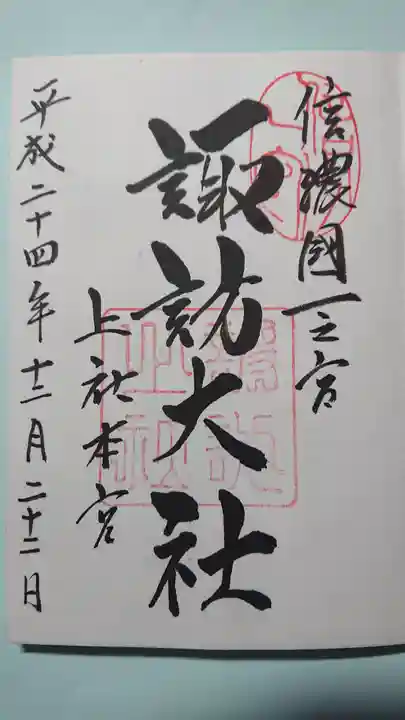 信濃國一之宮
諏訪大社
上社本宮
平成二十四年十二月二十二日